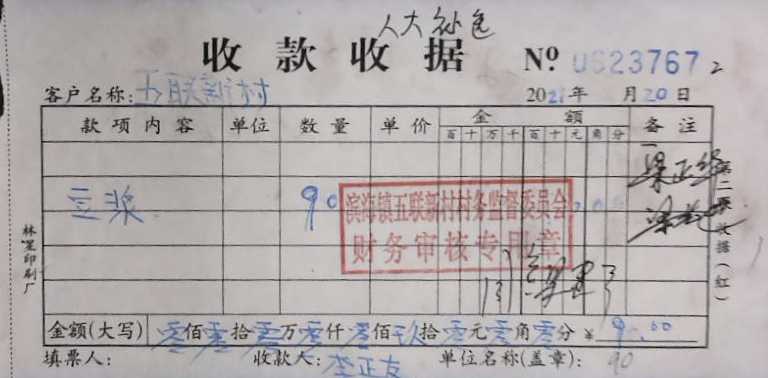 人大补选
收款收据 № 0623767 2
客户名称：五联新村 2021年 月20日
款项内容 单位 数量 单价 金额 备注
百 十 万 千 百 十 元 角 分
豆浆 90
滨海镇五联新村村务监督委员会
财务审核专用章
金额(大写) 零佰零拾零万零仟零佰玖拾零元零角零分 ¥ 90.00
填票人： 收款人：李正友 单位名称(盖章)： 90
第二联收据(红)
林垦印刷厂